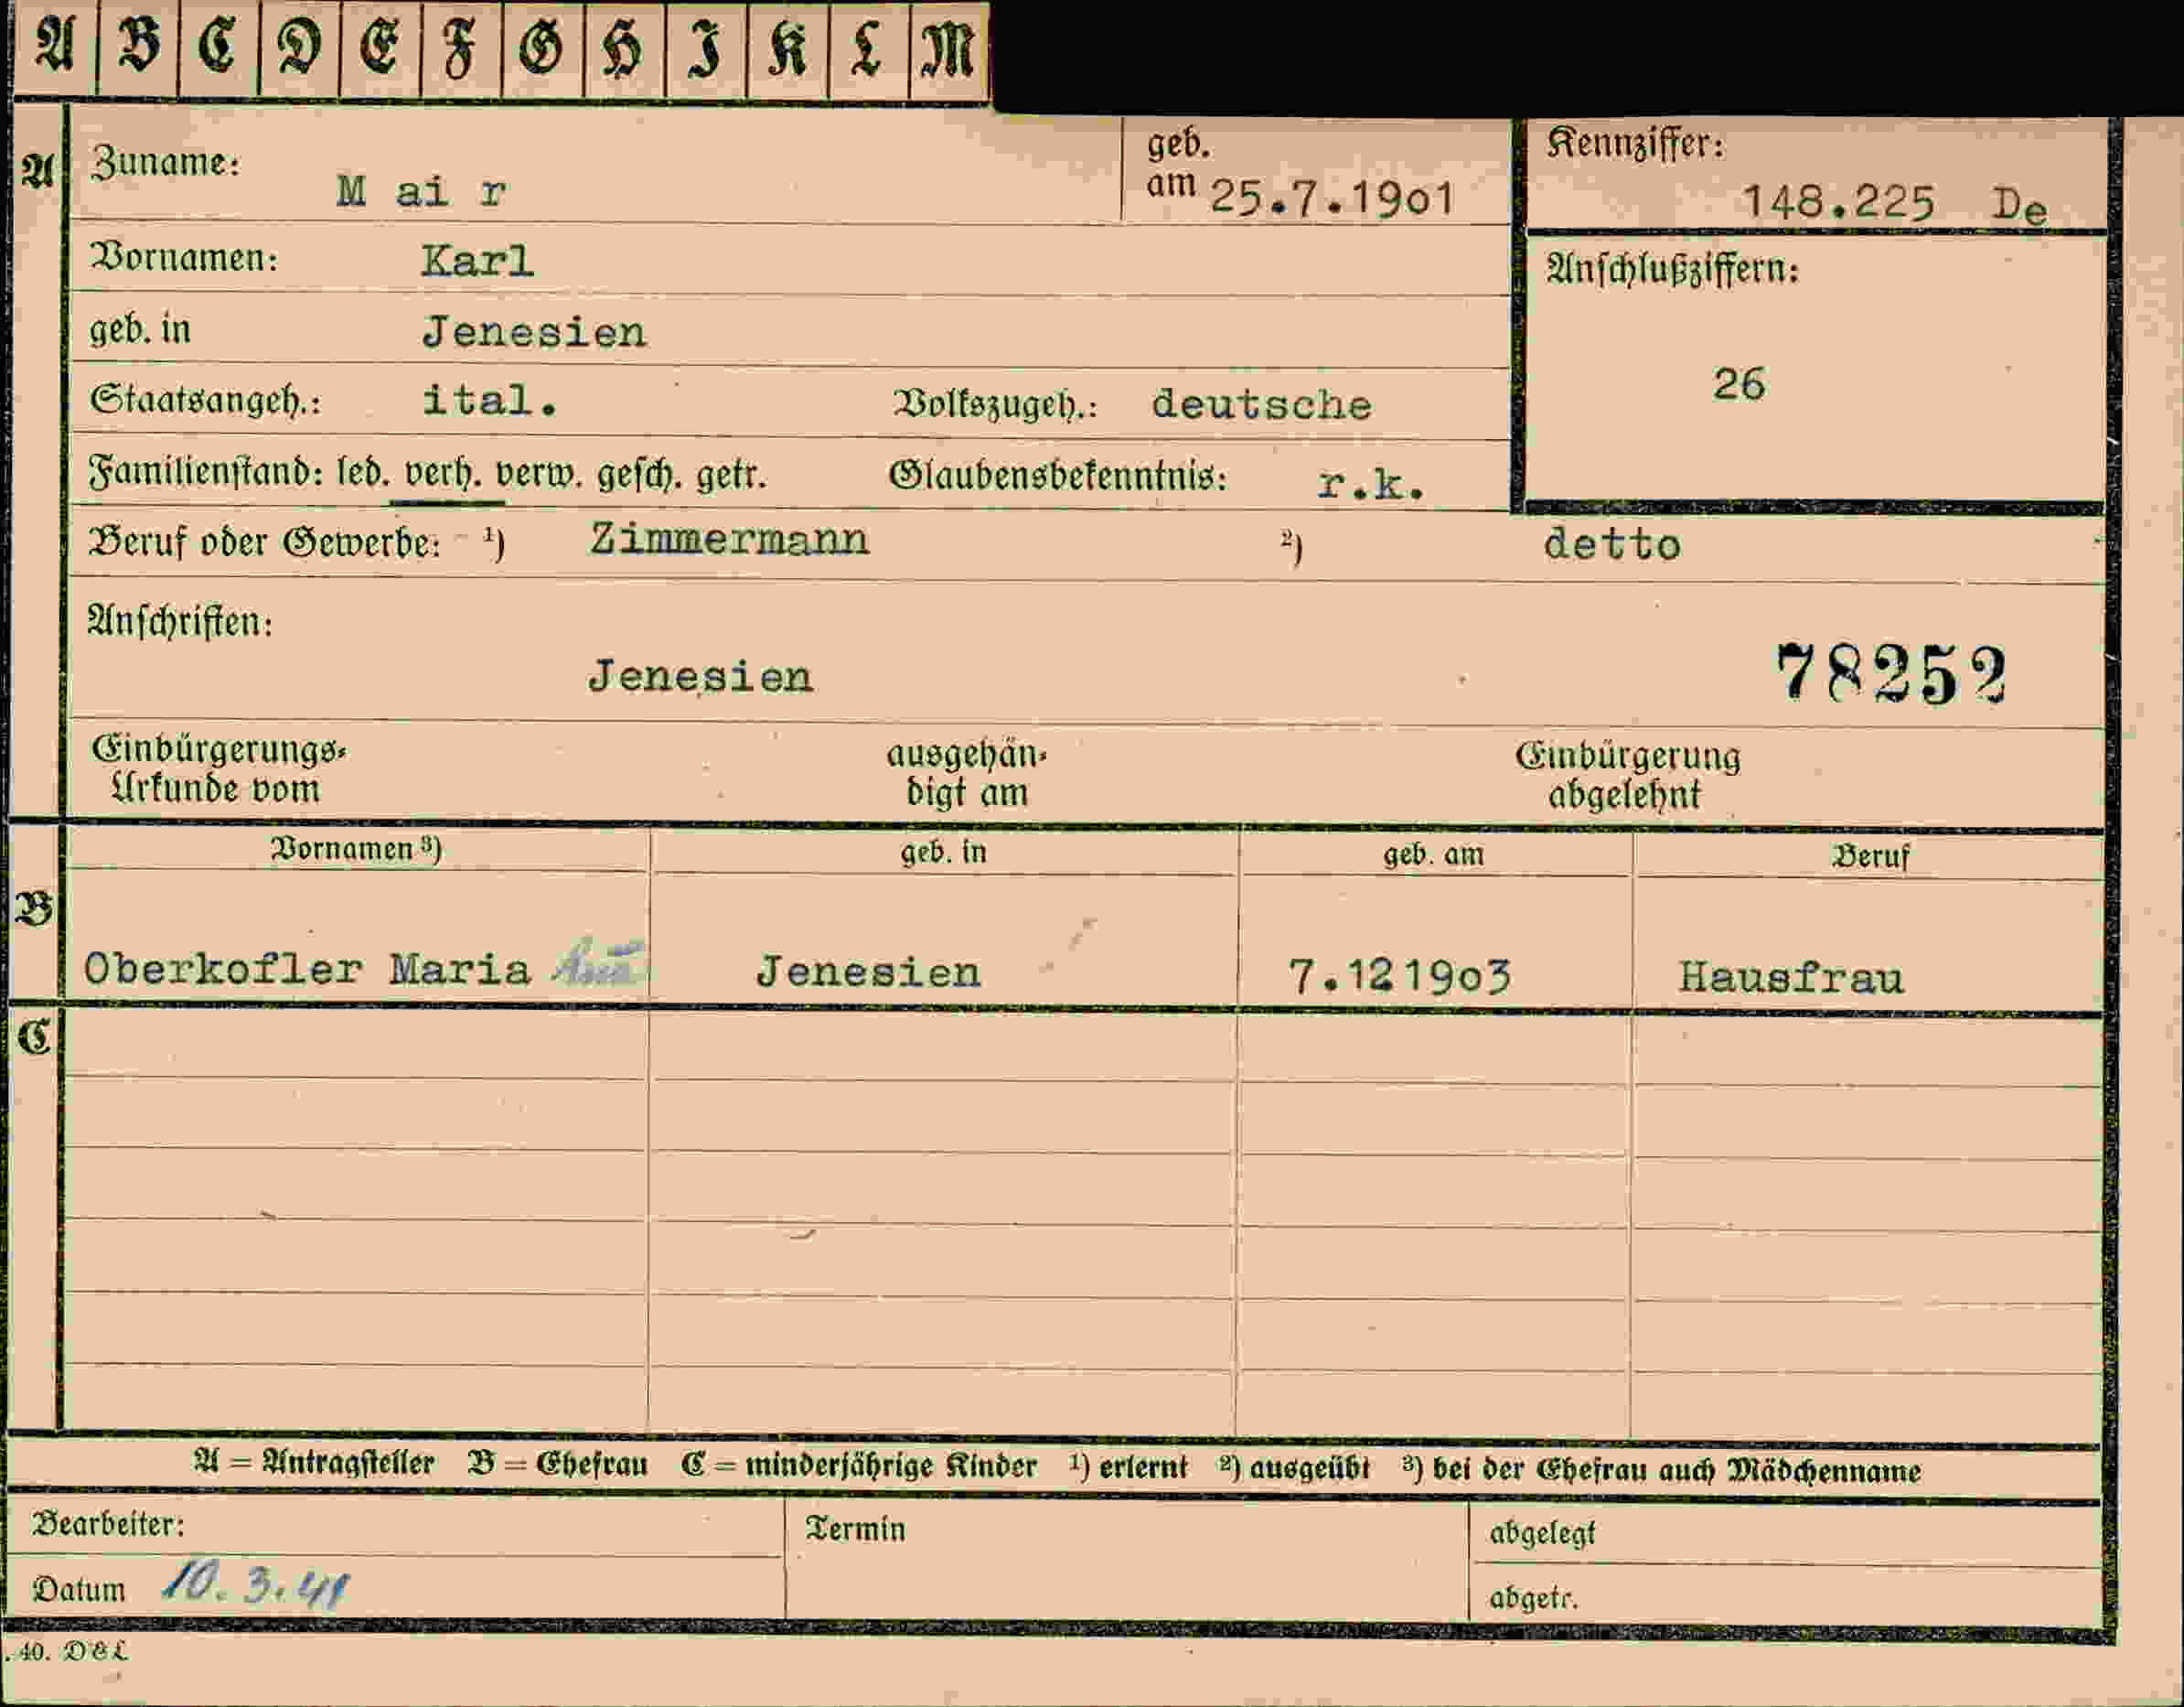 A B C D E F G H I K L M
A Zuname: M ai r geb. am 25.7.19o1 Kennziffer: 148.225 De
Vornamen: Karl Anschlußziffern:
geb. in Jenesien
26
Staatsangeh.: ital. Volkszugeh.: deutsche
Familienstand: led. verh. verw. gesch. getr. Glaubensbekenntnis: r.k.
Beruf oder Gewerbe: 1) Zimmermann 2) detto
Anschriften:
Jenesien 78252
Einbürgerungs- ausgehän- Einbürgerung
Urkunde vom digt am abgelehnt
Vornamen 3) geb. in geb. am Beruf
B
Oberkofler Maria Jenesien 7.1219o3 Hausfrau
C
A = Antragsteller B = Ehefrau C = minderjährige Kinder 1) erlernt 2) ausgeübt 3) bei der Ehefrau auch Mädchenname
Bearbeiter: Termin abgelegt
Datum 10.3.41 abgetr.
. 40. D&L